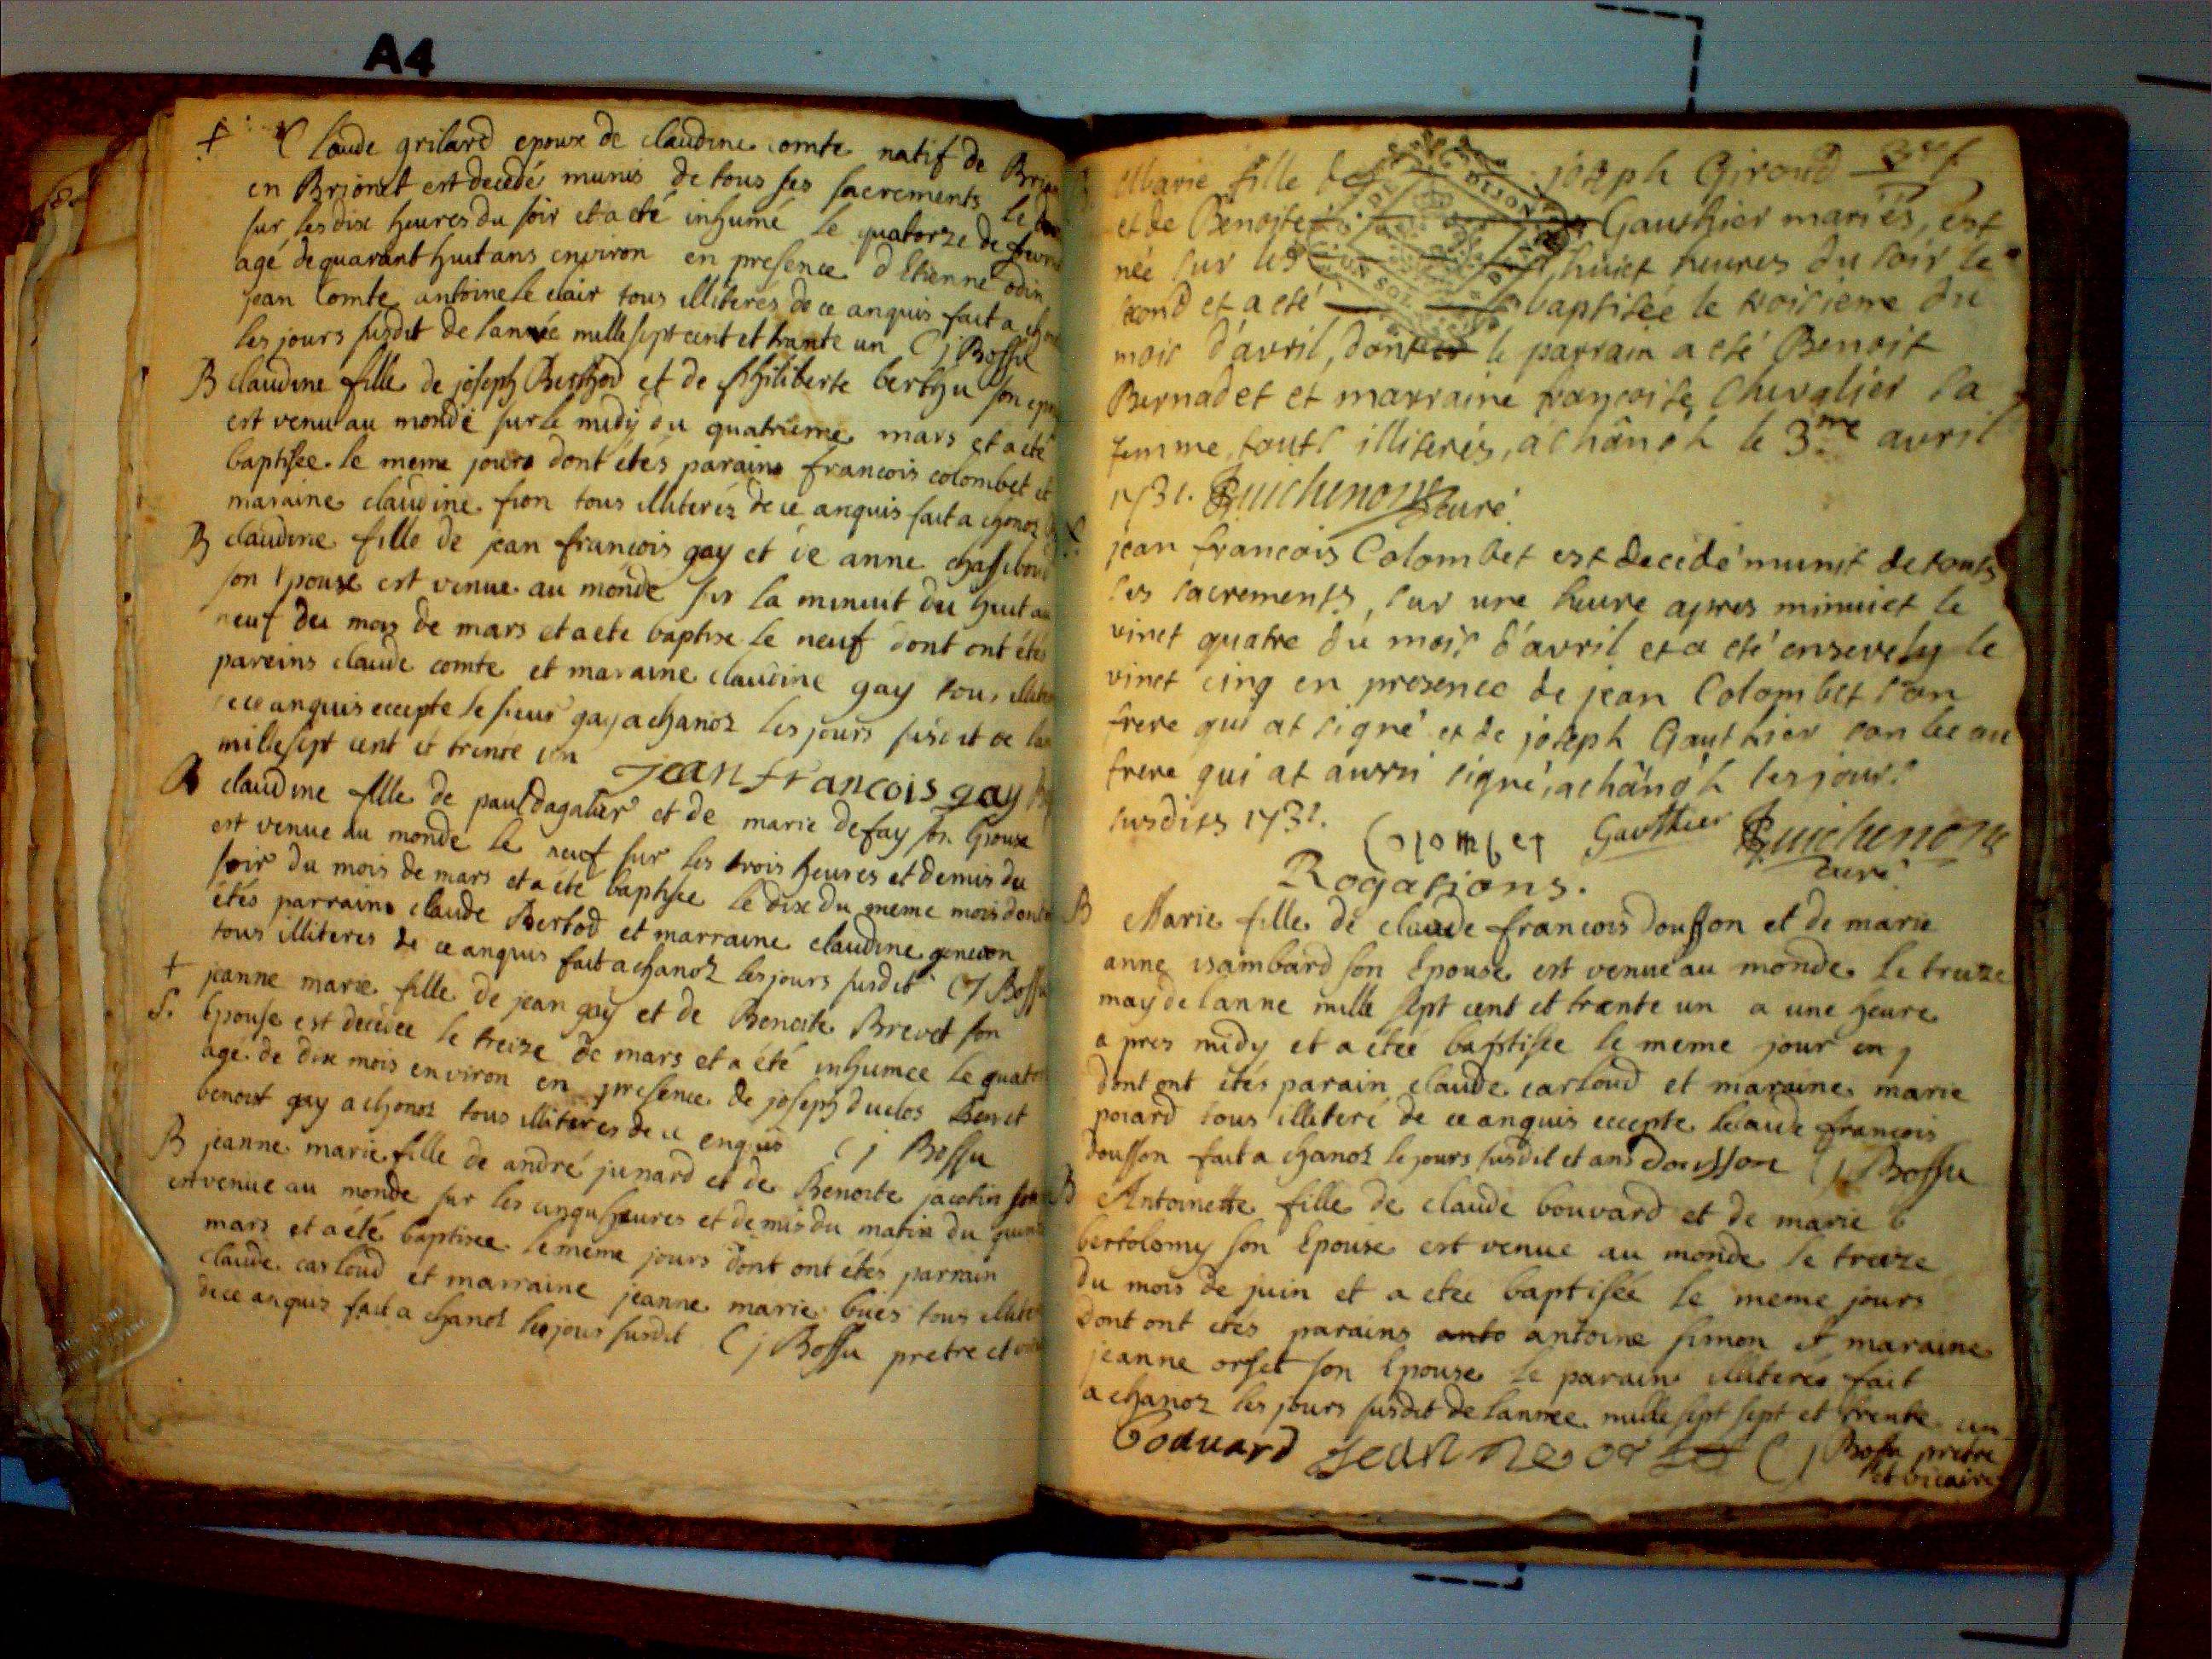 A4
Claude grilard epoux de claudine comte natif de
en Brionet est decedé munis de tous ses sacrements le
sur les dix heures du soir et a eté inhumé le quatorze de
agé de quarant huit ans environ en presence d Etienne odin
jean Comte antoine le clair tous illiteres de ce anquis fait a
les jours susdit de lannée mille sept cent et trante un C j Bossu
B claudine fille de joseph Berthod et de philiberte berthu son
est venu au monde sur le midy du quatrieme mars et a eté
baptisee le meme jours dont étés parains francois colombet et
maraine claudine fion tous illiteréz de ce anquis fait a chanoz
B claudine fille de jean francois gay et de anne
son Epouse est venue au monde sur la minuit du huit au
neuf du mois de mars et a ete baptise le neuf dont ont étés
pareins claude comte et maraine claudine gay tous
de ce anquis eccepte le sieur gay a chanoz les jours susdit de
mille sept cent et trente un jean francois gay
B claudine fille de paul dagalier et de marie defay son Epouse
est venue au monde le neuf sur les trois heures et demis du
soir du mois de mars et a ete baptisee le dix du meme mois dont
étés parrains claude Bertod et marraine claudine
tous illiteres de ce anquis fait a chanoz les jours susdit C j Bossu
+ jeanne marie fille de jean gay et de Benoite Brevet son
S. Epouse est decedee le treize de mars et a été inhumee le
agé de dix mois environ en presence de joseph duclos
benoist gay a chonoz tous illiteres de ce enquis C j Bossu
B jeanne marie fille de andré junard et de Benoite jacolin
est venue au monde sur les cinqu heures et demis du matin du
mars et a été baptisee le meme jours dont ont étés parrain
claude carloud et marraine jeanne marie buies tous
de ce anquis fait a chanoz les jours susdit C j Bossu pretre et
Marie fille de joseph Giroud
et de Benoite Gauthier mariés, est
née sur les huict heures du soir le
second et a eté baptisée le troisieme du
mois d'avril, dont le parrain a eté Benoit
Bernadet et marraine françoise Chevalier sa
femme, touts illiterés, a chânoz le 3.me avril
1731. Guichenon curé.
jean francois Colombet est decedé munit de touts
les sacrements, sur une heure apres minuict le
vinct quatre du mois d'avril et a eté ensevely le
vinct cinq en presence de jean Colombet son
frere qui at signé et de joseph Gauthier son beau
frere qui at aussi signé, a chânoz les jours
susdits 1731. Colombet Gauthier Guichenon
curé
Rogations.
B Marie fille de claude francois dousson et de marie
anne isambard son Epouse est venue au monde le treize
may de lanne mille sept cent et trente un a une heure
a pres midy et a etee baptisee le meme jour
dont ont étés parain claude carloud et maraine marie
poiard tous illiteré de ce anquis eccepte claude francois
dousson fait a chanoz le jours susdit et ans dousson C j Bossu
B Antoinette fille de claude bouvard et de marie
bertolomy son Epouse est venue au monde le treize
du mois de juin et a etee baptisée le meme jours
dont ont etés parains anto antoine simon et maraine
jeanne orset son Epouse le parains illiterés fait
a chanoz les jours susdit de lannee mille sept sept et trente un
bouvard jeanne orset C j Bossu pretre
et vicaire